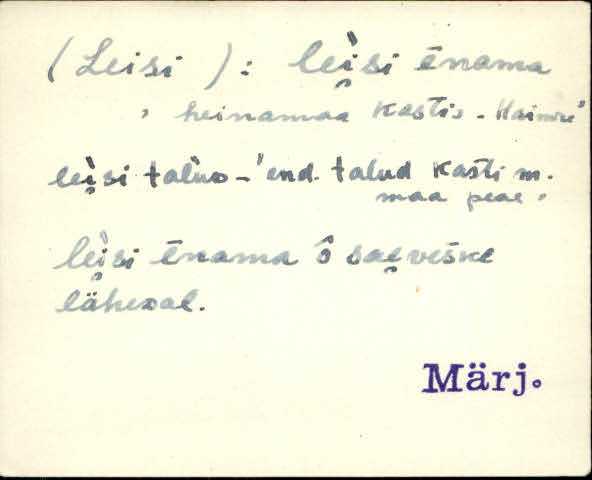 (Leisi): leì̯si ēnama
' heinamaa Kastis - Haimre'
leì̯si tal̀uᴅ - 'end. talud Kasti m.
maa peal'
leì̯si ēnama ō̂ sae̯veske
läheᴅal.
Märj.